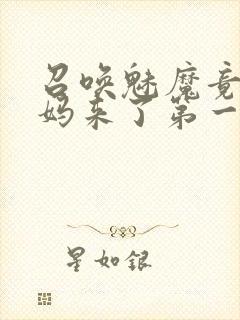 召唤魅魔竟
妈来了第一
星如银